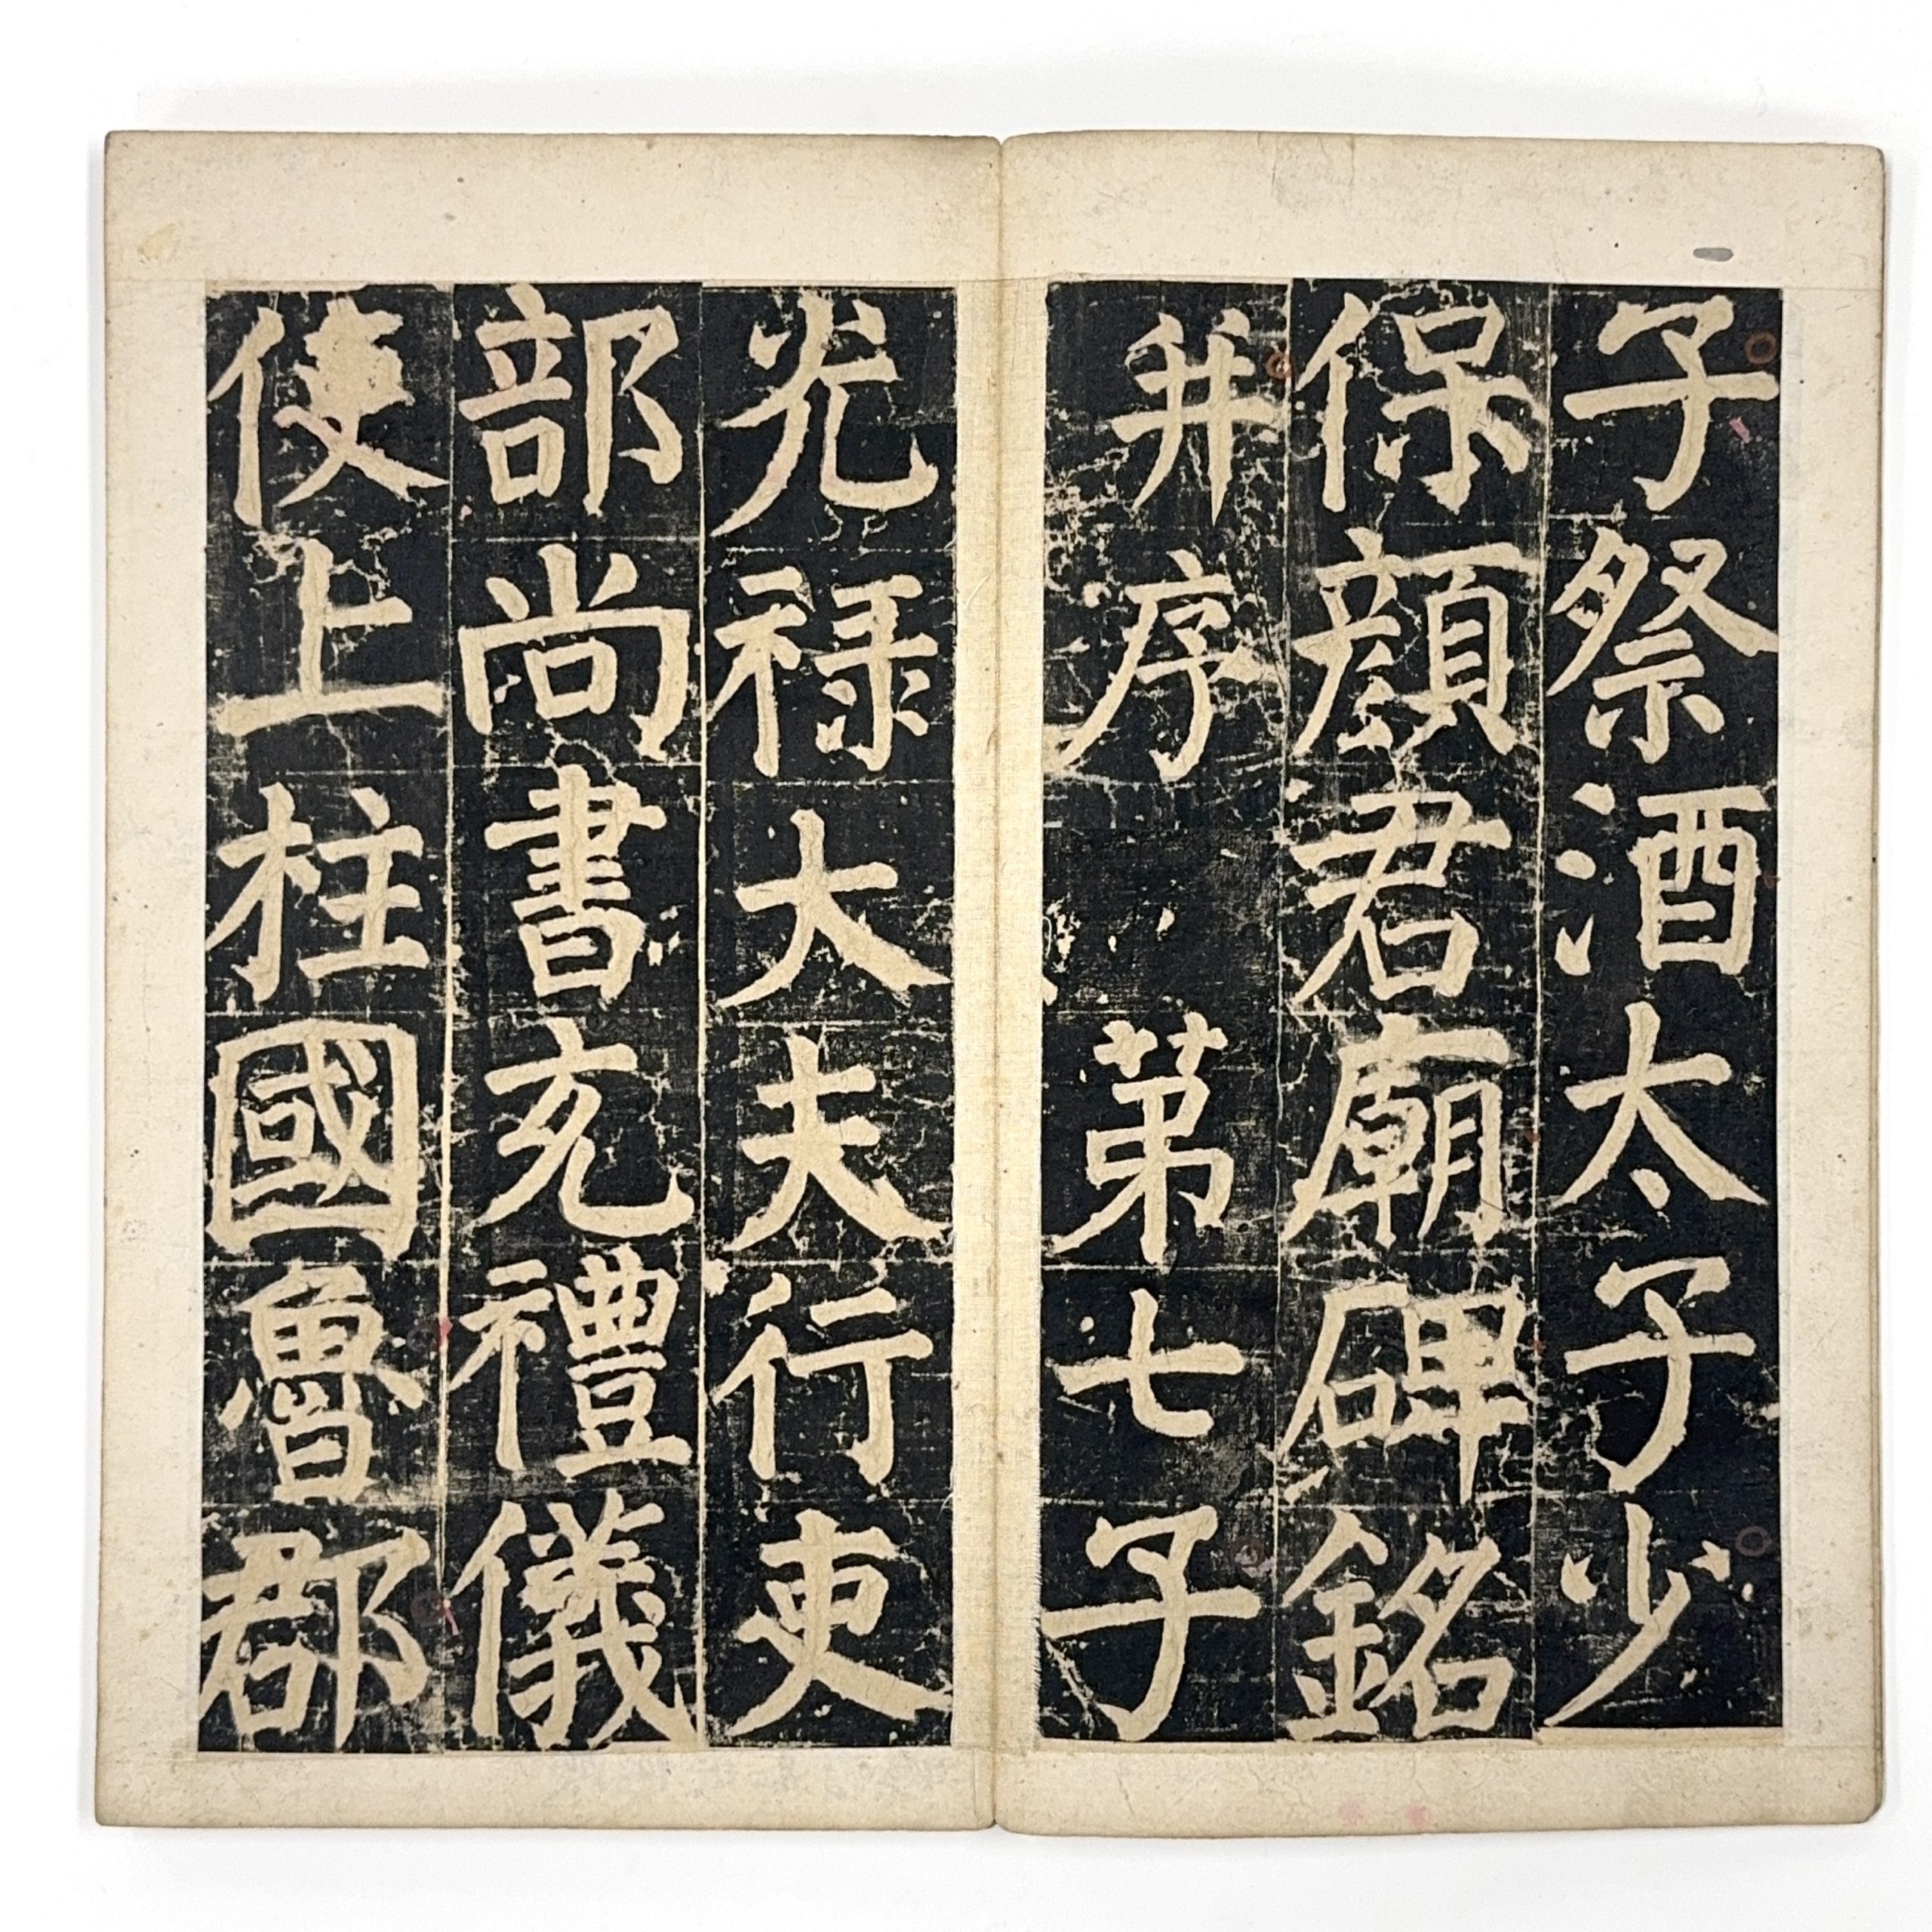 子祭酒太子少
保顏君廟碑銘
并序 苐七子
光祿大夫行吏
部尚書充禮儀
使上柱國魯郡